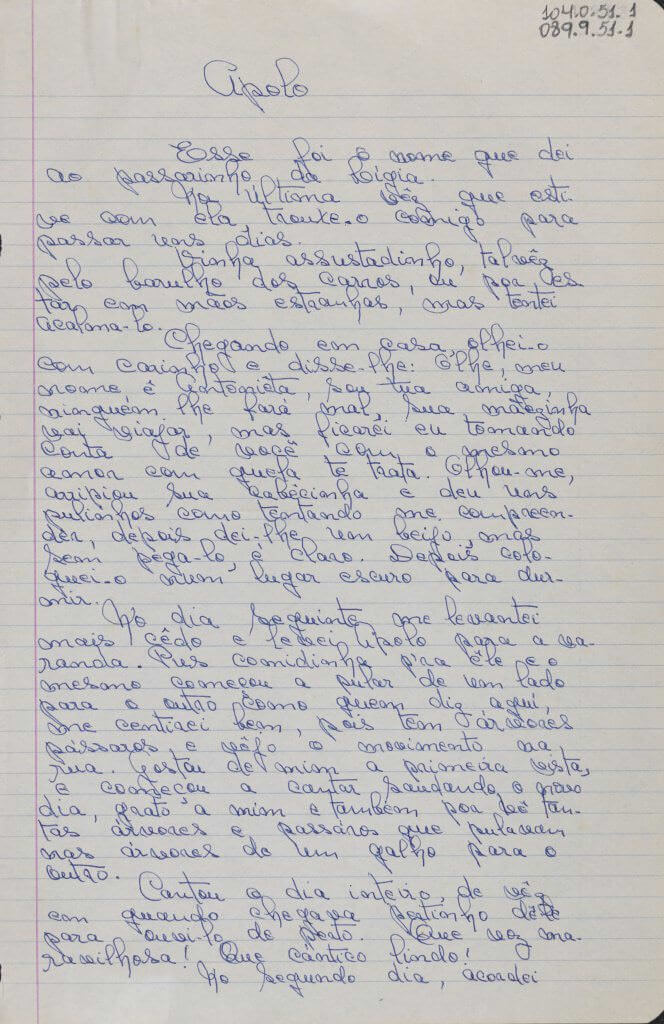 104.0.51.1
089.9.51-1
Apolo
Esse foi o nome que dei
ao passarinho da Ligia.
Na última vêz que esti-
ve com ela trouxe-o comigo para
passar uns dias.
Vinha assustadinho, talvêz
pelo barulho dos carros, ou por es
tar em mãos estranhas, mas tentei
acalma-lo.
Chegando em casa, olhei-o
com carinho e disse-lhe: Olhe, meu
nome é Antonieta, sou tua amiga,
ninguém lhe fará mal, sua mãezinha
vai viajar, mas ficarei eu tomando
conta de você com o mesmo
amor com quela te trata. Olhou-me,
arripiou sua cabècinha e deu uns
pulinhos como tentando me compreen-
der, depois dei-lhe um beijo, mas
sem pega-lo, é claro. Depois colo-
quei-o num lugar escuro para dur-
mir.
No dia seguinte, me levantei
mais cêdo e levei Apolo para a va-
randa. Pus comidinha p'ra êle e o
mesmo começou a pular de um lado
para o outro como quem diz aqui,
me centirei bem, pois tem árvores
pássaros, e vêjo o movimento na
rua. Gostou de mim a primeira vista,
e começou a cantar saudando o novo
dia, grato a mim e também por vê tan-
tas árvores e passáros que pulavam
nas árvores de um galho para o
outro.
Cantou o dia inteiro, de vêz
em quando chegava pertinho dele
para ouvi-lo de perto. Que voz ma-
ravilhosa! Que cântico lindo!
No segundo dia, acordei